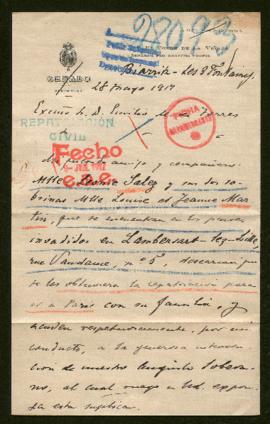 28093
SENADO
Biarritz - Les 3 Fontaines
28 Mayo 1917
Excmo Sr. D. Emilio M. de Torres
REPATRIACIÓN
CIVIL
Fecho
y compañero:
Mlle Saley y sus dos so-
brinas Mlle Louise et Jeanne Mar-
tin, que se encuentran en los paises
invadidos en Lambersart-lez-Lille,
rue nº 5, desearian que
se les obtuviera la repatriación para
ir a Paris con su familia, y
acuden respetuosamente, por mi
conducto, a la generosa interven-
ción de nuestro Augusto Sobera-
no, al cual ruego a Ud. expon-
ga esta súplica.